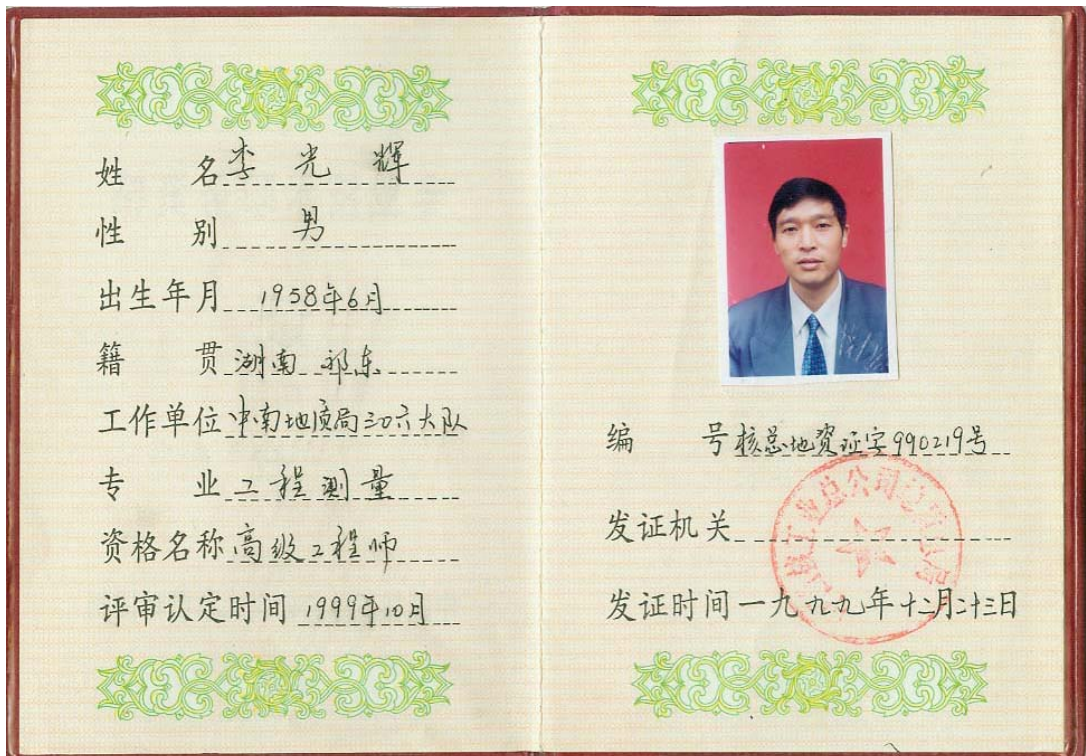 姓 名 李光辉
性 别 男
出生年月 1958年6月
籍 贯 湖南 祁东
工作单位 中南地质局三0六大队
专 业 工程测量
资格名称 高级工程师
评审认定时间 1999年10月
编 号 核总地资证字990219号
发证机关
工业总公司
局
发证时间 一九九九年十二月二十三日